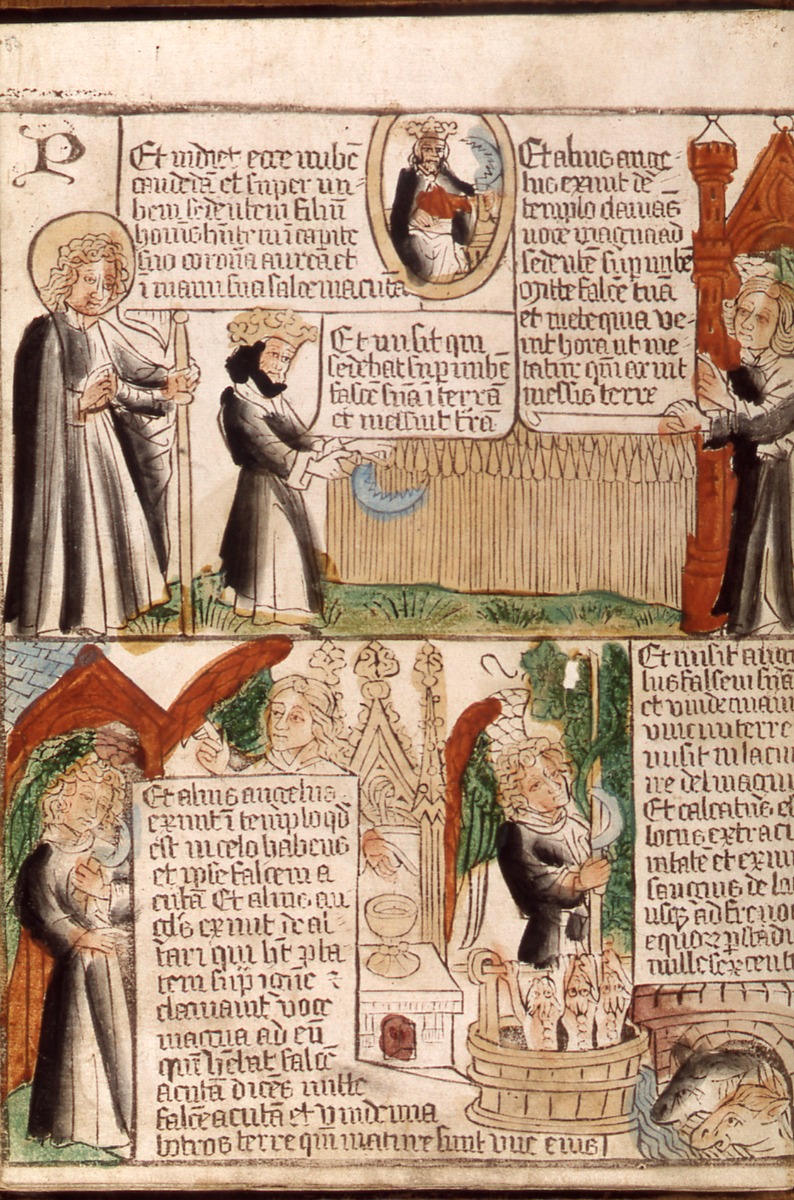 P
Et vidi et ecce nubē
candidā et super nu-
bem sedentem filiū
hominis hn̄tē in capite
suo coronā aureā et
i manu sua falcē acutā
Et alius ange-
lus exivit de
templo clamās
voce magna ad
sedentē sup nubē
Mitte falcē tuā
et mete quia ve-
nit hora ut me-
tatur qm̄ aruit
messis terre
Et misit qui
sedebat sup nubē
falcē suā i terrā
et messuit trā
Et alius angelus
exivit i templo qd
est in celo habens
et ipse falcem a
cutā Et alius an
gls exivit de al-
tari qui ht pta
tem sup ignē et
clamavit voce
magna ad eū
qui hēbat falcē
acutā dicēs mitte
falcē acutā et vindemia
botros terre qm̄ mature sunt uve eius
Et misit ange
lus falcem suā
et vindemiavi
vineam terre
misit in lacu
ire dei magnu
Et calcatus e
locus extra ci
vitatē et exivi
sanguis de la
usq ad freno
equorz p stadi
mille sexcent